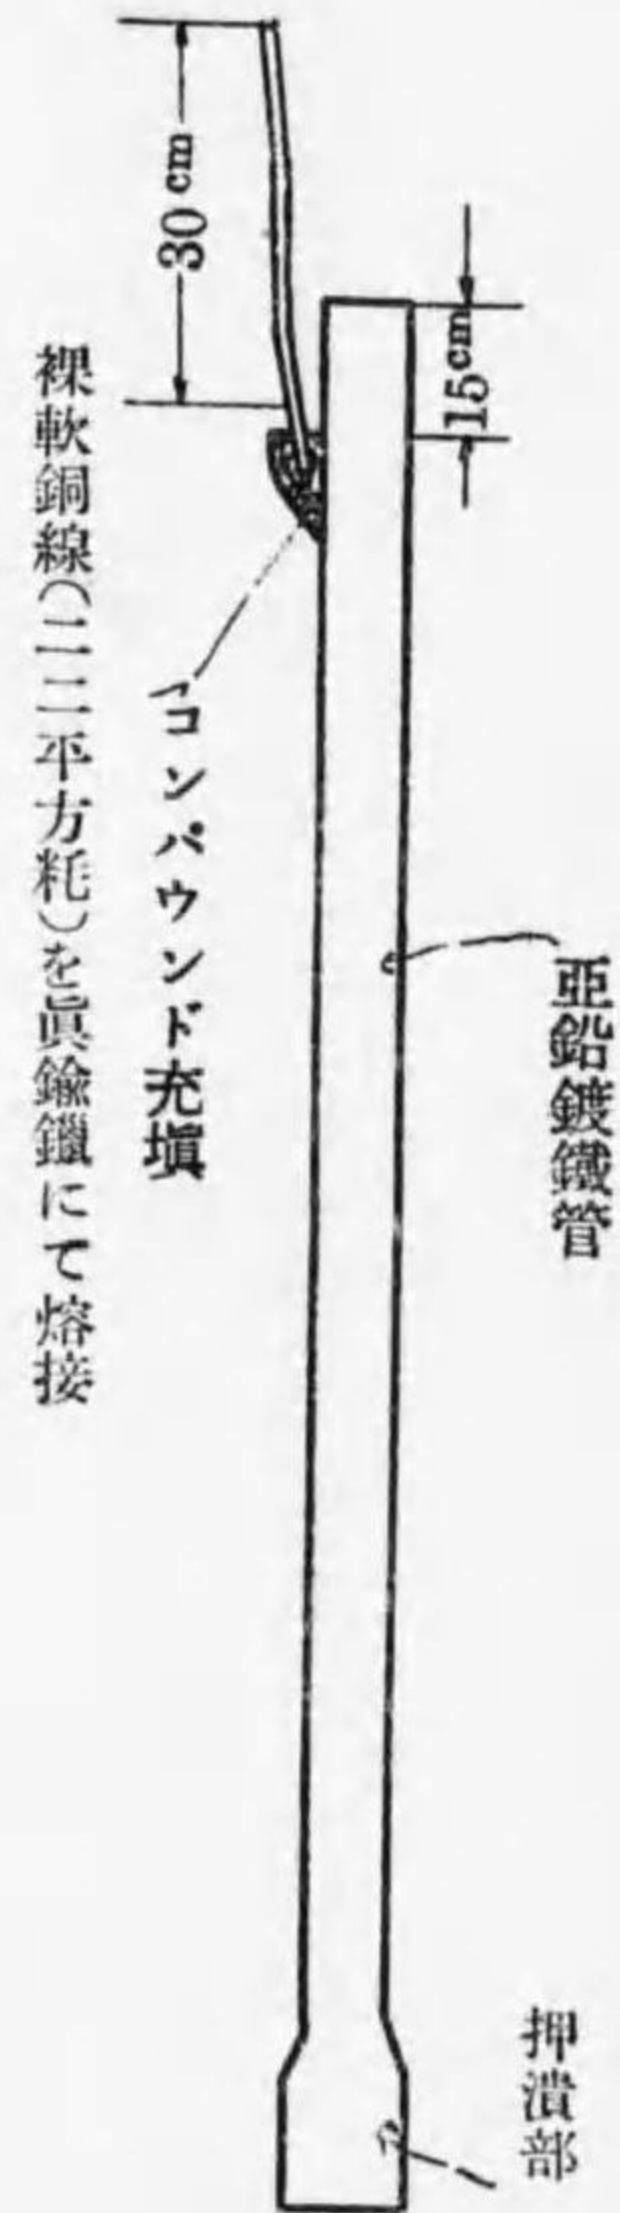 30 cm
15 cm
亜鉛鍍鐵管
押潰部
コンパウンド充塡
裸軟銅線(二二平方粍)を眞鍮鑞にて熔接